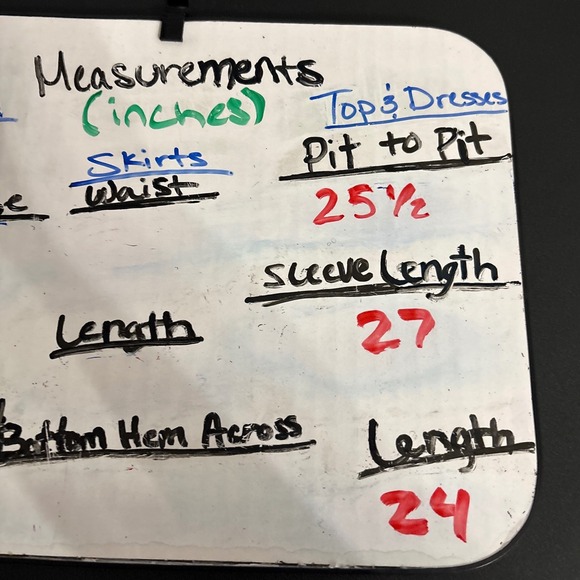 Measurements
(inches)
Top & Dresses
Skirts
Pit to Pit
Waist
25 1/2
Sleeve Length
Length
27
Bottom Hem Across
Length
24